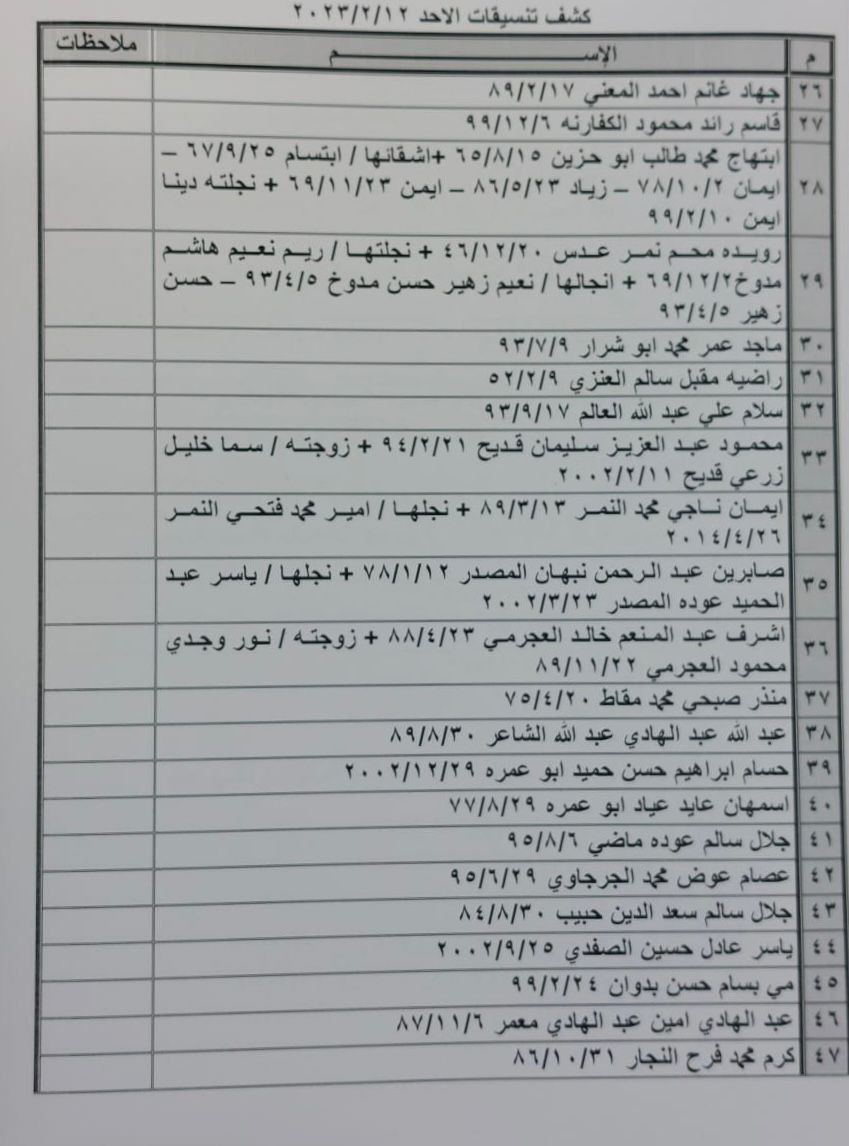 كشف تنسيقات الاحد ٢٠٢٣/٢/١٢
م الإســــم ملاحظات
٢٦ جهاد غانم احمد المعني ٨٩/٢/١٧
٢٧ قاسم رائد محمود الكفارنه ٩٩/١٢/٦
ابتهاج محمد طالب ابو حزين ٦٥/٨/١٥ +اشقائها / ابتسام ٦٧/٩/٢٥ –
٢٨ ايمان ٧٨/١٠/٢ – زياد ٨٦/٥/٢٣ – ايمن ٦٩/١١/٢٣ + نجلته دينا
ايمن ٩٩/٢/١٠
رويده محم نمر عدس ٤٦/١٢/٢٠ + نجلتها / ريم نعيم هاشم
٢٩ مدوخ٦٩/١٢/٢ + انجالها / نعيم زهير حسن مدوخ ٩٣/٤/٥ – حسن
زهير ٩٣/٤/٥
٣٠ ماجد عمر محمد ابو شرار ٩٣/٧/٩
٣١ راضيه مقبل سالم العنزي ٥٢/٢/٩
٣٢ سلام علي عبد الله العالم ٩٣/٩/١٧
٣٣ محمود عبد العزيز سليمان قديح ٩٤/٢/٢١ + زوجته / سما خليل
زرعي قديح ٢٠٠٢/٢/١١
٣٤ ايمان ناجي محمد النمر ٨٩/٣/١٣ + نجلها / امير محمد فتحي النمر
٢٠١٤/٤/٢٦
٣٥ صابرين عبد الرحمن نبهان المصدر ٧٨/١/١٢ + نجلها / ياسر عبد
الحميد عوده المصدر ٢٠٠٢/٣/٢٣
٣٦ اشرف عبد المنعم خالد العجرمي ٨٨/٤/٢٣ + زوجته / نور وجدي
محمود العجرمي ٨٩/١١/٢٢
٣٧ منذر صبحي محمد مقاط ٧٥/٤/٢٠
٣٨ عبد الله عبد الهادي عبد الله الشاعر ٨٩/٨/٣٠
٣٩ حسام ابراهيم حسن حميد ابو عمره ٢٠٠٢/١٢/٢٩
٤٠ اسمهان عايد عياد ابو عمره ٧٧/٨/٢٩
٤١ جلال سالم عوده ماضي ٩٥/٨/٦
٤٢ عصام عوض محمد الجرجاوي ٩٥/٦/٢٩
٤٣ جلال سالم سعد الدين حبيب ٨٤/٨/٣٠
٤٤ ياسر عادل حسين الصفدي ٢٠٠٢/٩/٢٥
٤٥ مي بسام حسن بدوان ٩٩/٢/٢٤
٤٦ عبد الهادي امين عبد الهادي معمر ٨٧/١١/٦
٤٧ كرم محمد فرح النجار ٨٦/١٠/٣١